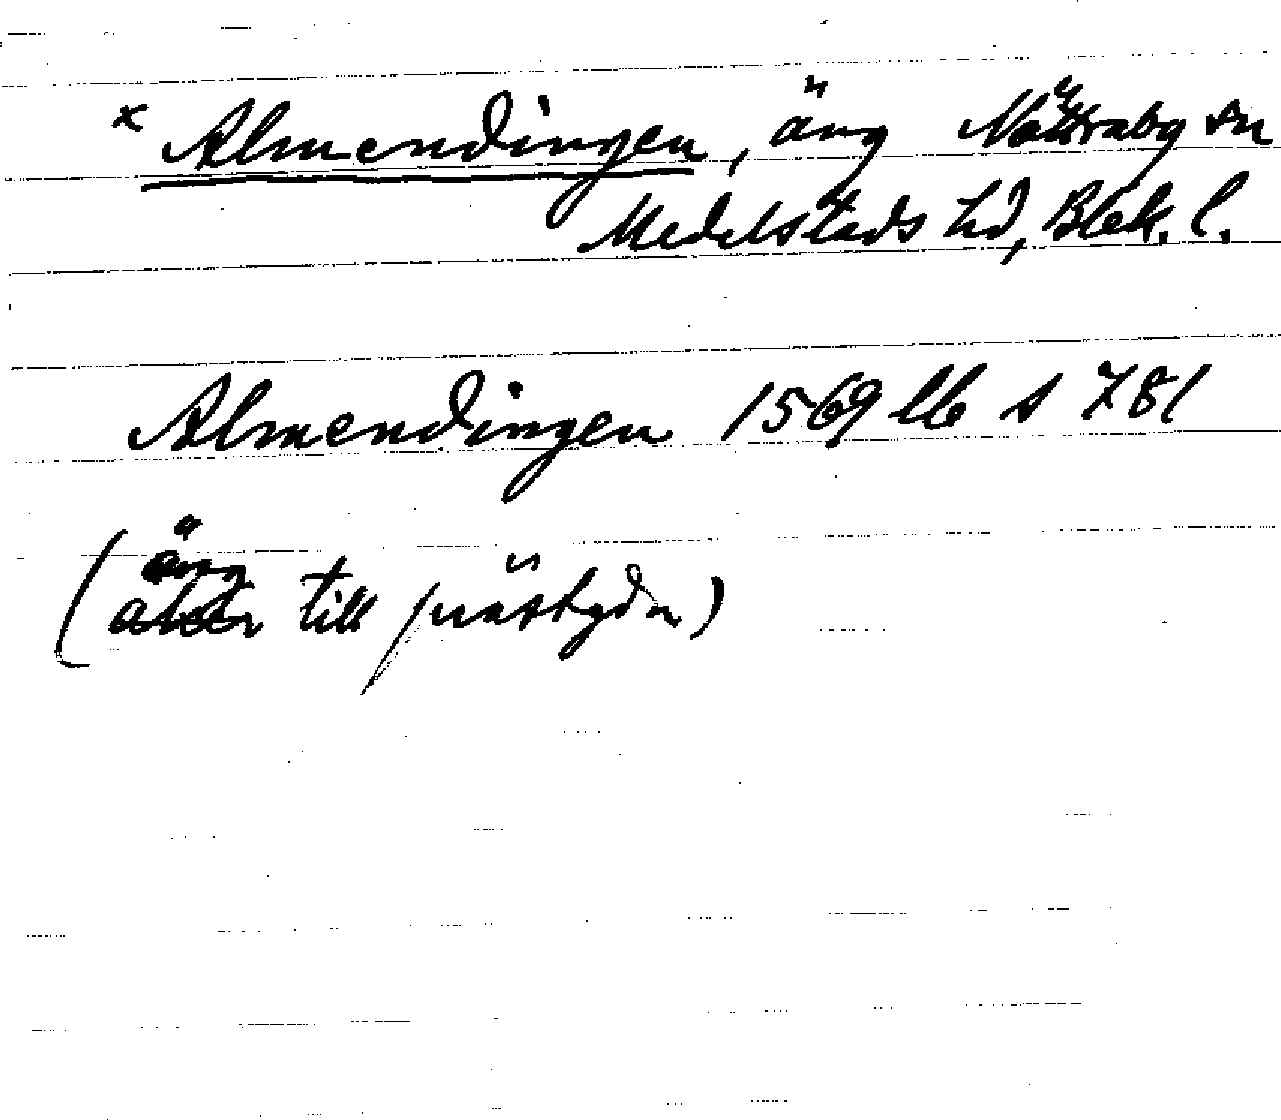 x Almendingen, äng Nättraby sn
Medelstads hd, Blek. l.
Almendingen 1569 llb s 781
(äng
till prästgdn)